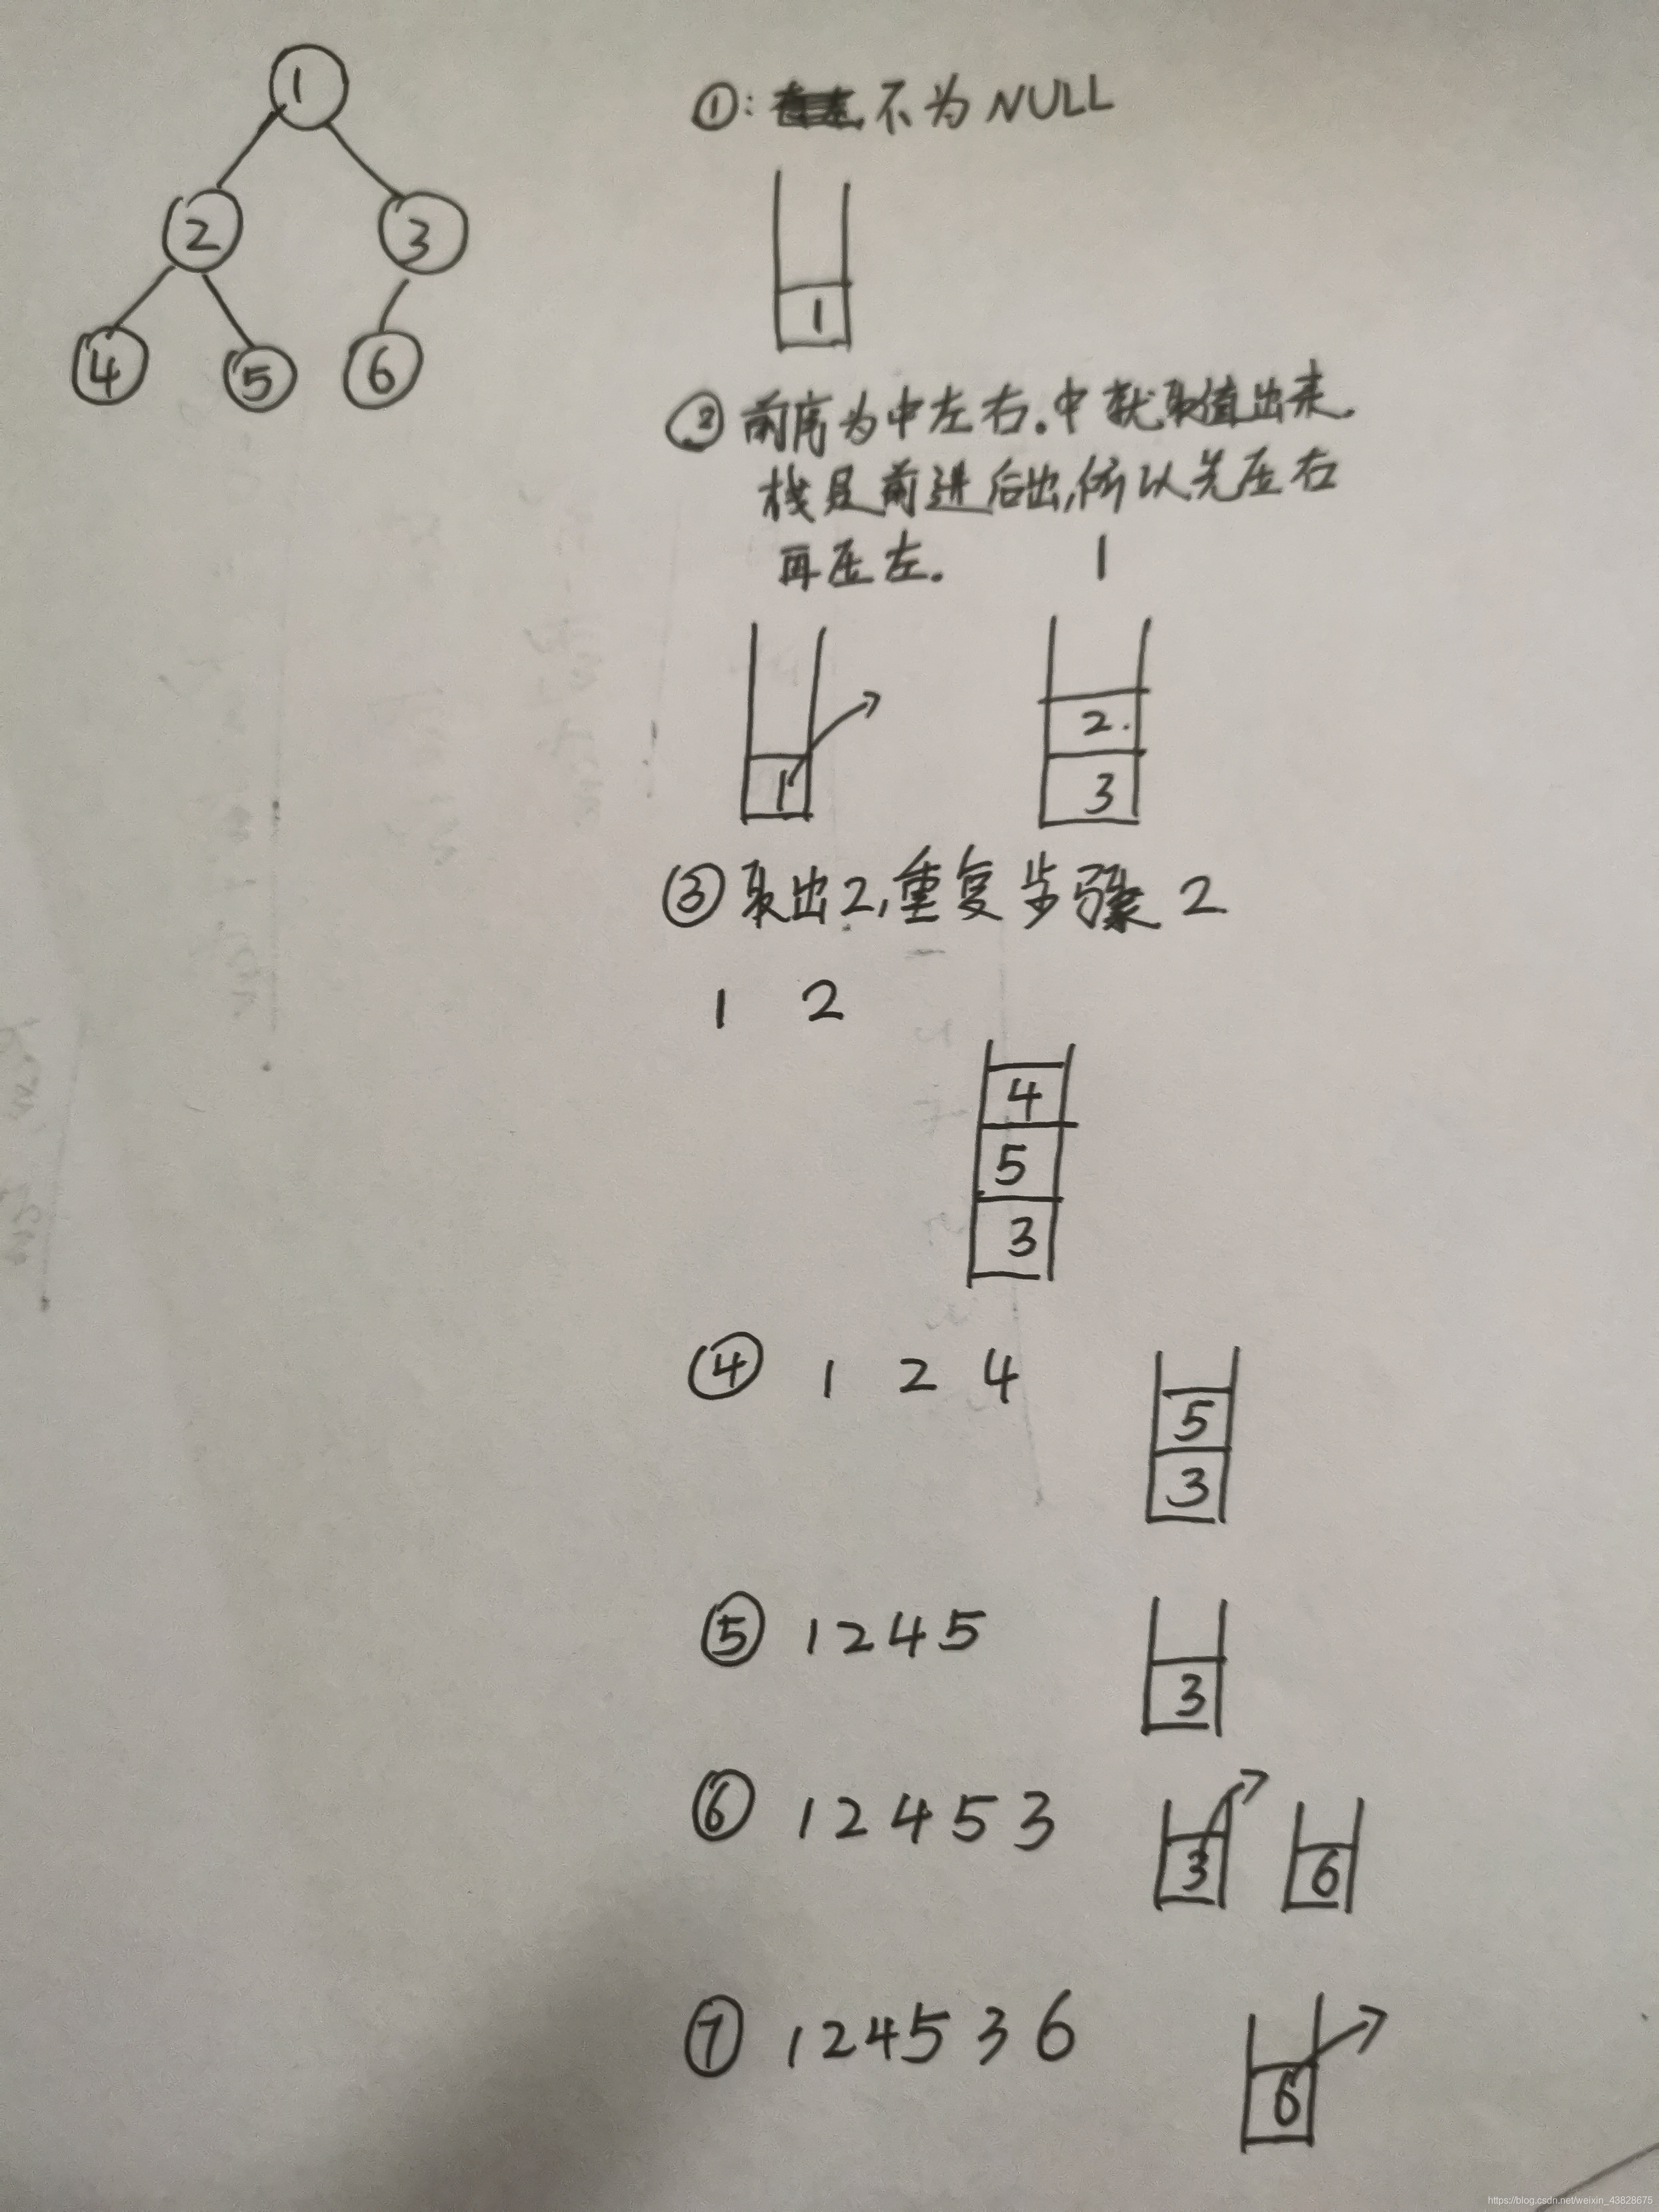 1
2 3
4 5 6
①: 不为 NULL
1
② 前序为中左右.中就取值出来.
栈是前进后出,所以先压右
再压左. 1
1
2.
3
③ 取出2,重复步骤 2
1 2
4
5
3
④ 1 2 4
5
3
⑤ 1 2 4 5
3
⑥ 1 2 4 5 3
3 6
⑦ 1 2 4 5 3 6
6
https://blog.csdn.net/weixin_43828675